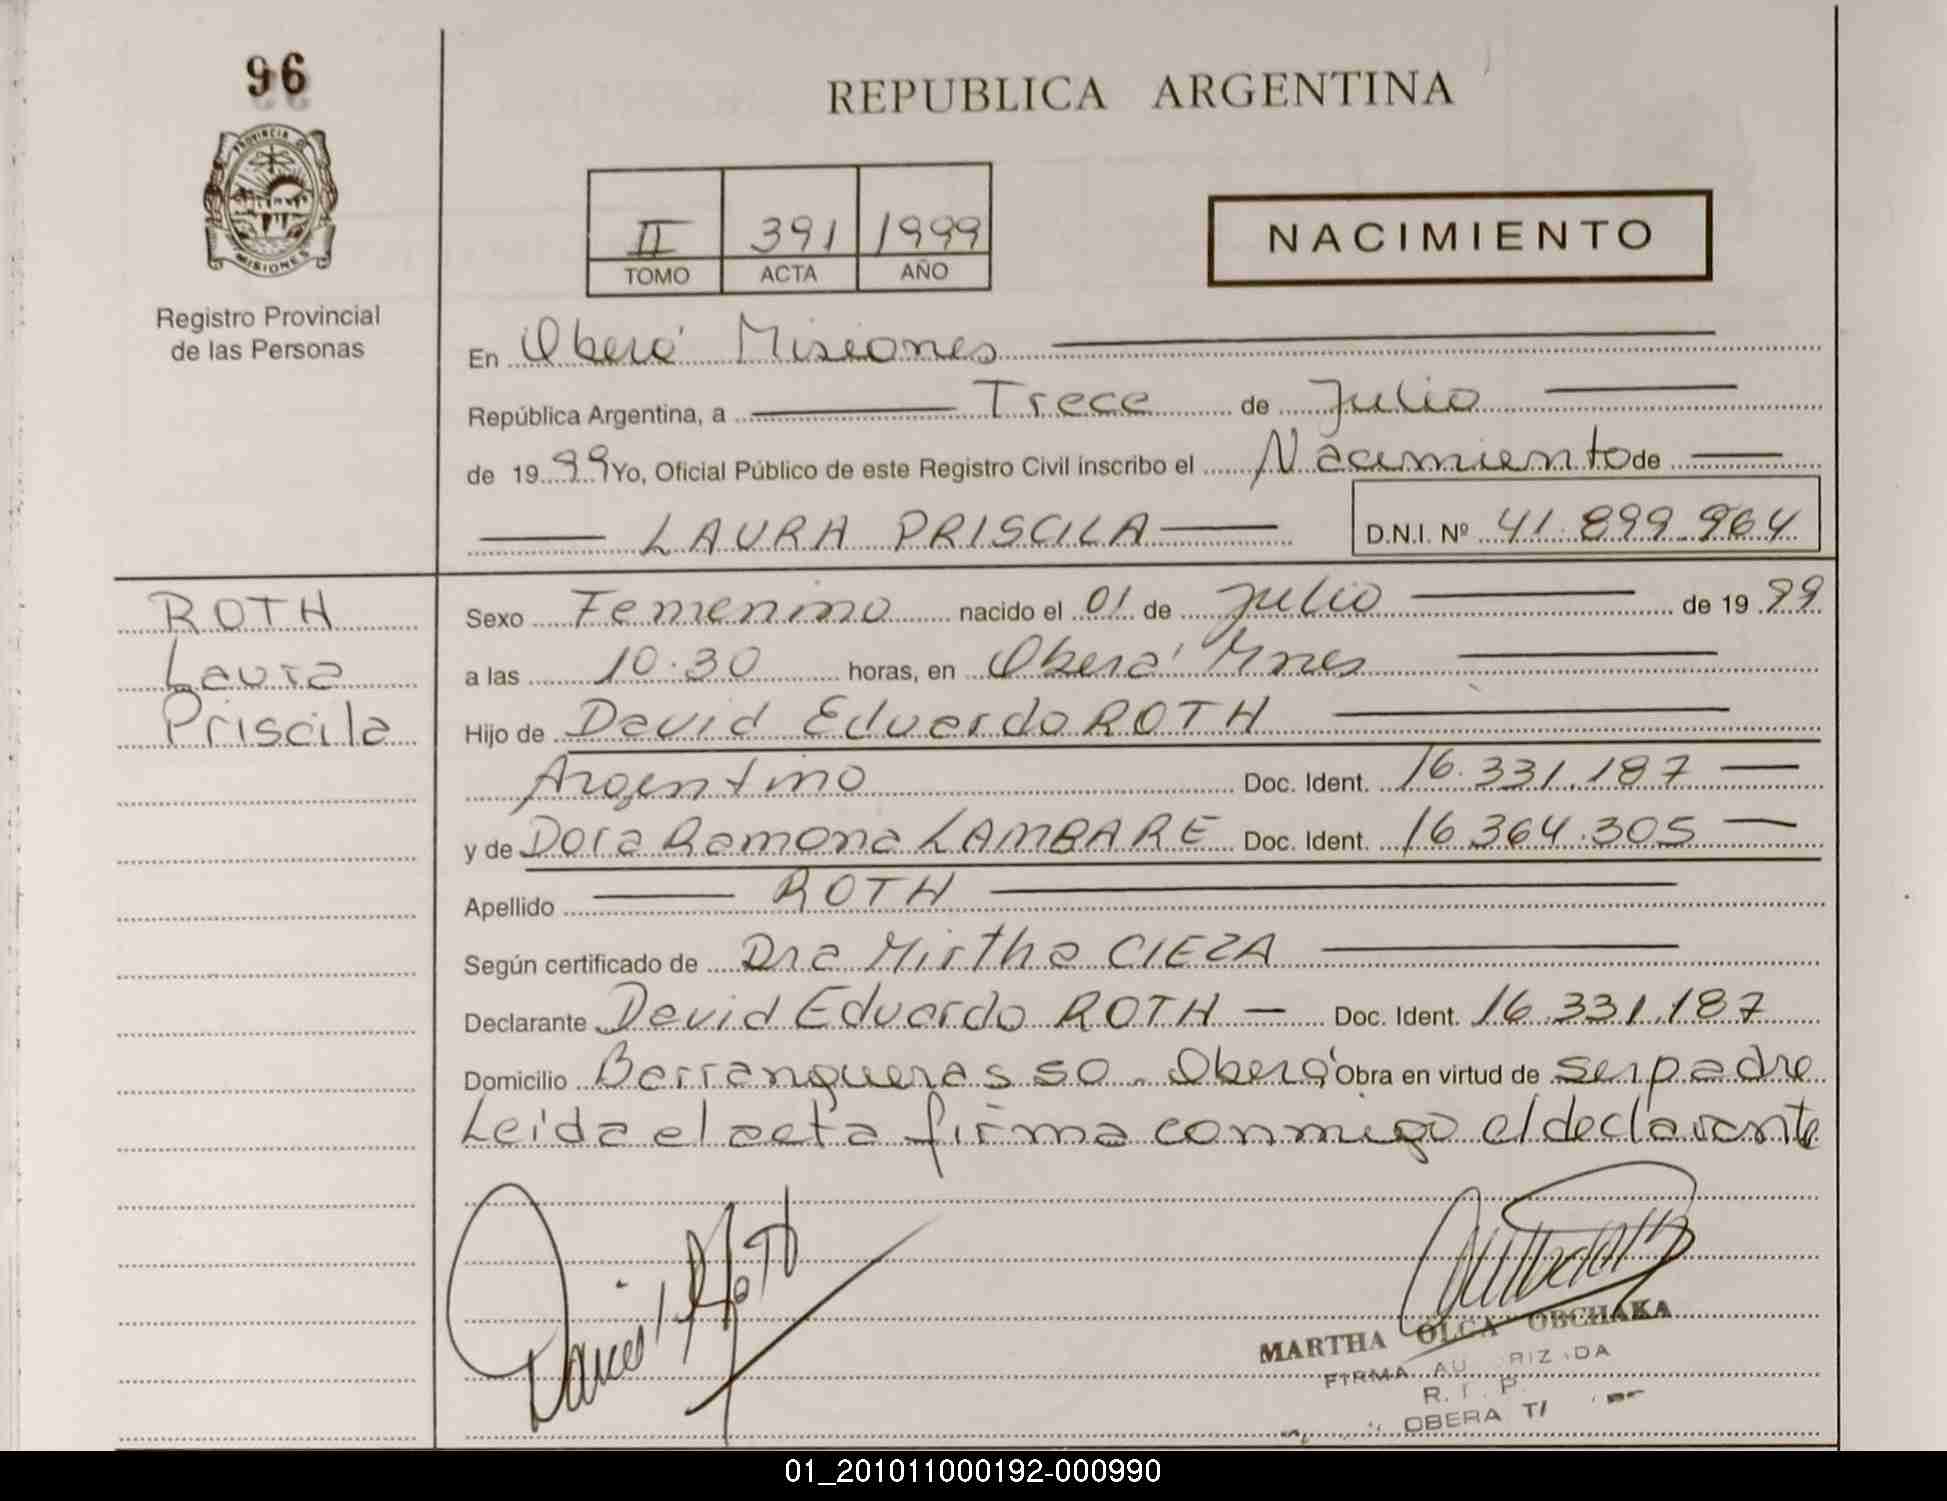 96
REPUBLICA ARGENTINA
PROVINCIA DE
MISIONES
Registro Provincial
de las Personas
II 391 1999
TOMO ACTA AÑO
NACIMIENTO
En Oberá Misiones
República Argentina, a Trece de Julio
de 1999 Yo, Oficial Público de este Registro Civil inscribo el Nacimiento de
LAURA PRISCILA D.N.I. Nº 41.899.964
ROTH
Laura
Priscila
Sexo Femenino nacido el 01 de Julio de 1999
a las 10.30 horas, en Oberá Mnes
Hijo de David Eduardo ROTH
Argentino Doc. Ident. 16.331.187
y de Dora Ramona LAMBARE Doc. Ident. 16.364.305
Apellido ROTH
Según certificado de Dra Mirtha CIEZA
Declarante David Eduardo ROTH Doc. Ident. 16.331.187
Domicilio Barranqueras so. Oberá Obra en virtud de ser padre
Leída el acta firma conmigo el declarante
MARTHA OLGA OBCHAKA
FIRMA AU RIZ DA
R. P.
OBERA
01_201011000192-000990